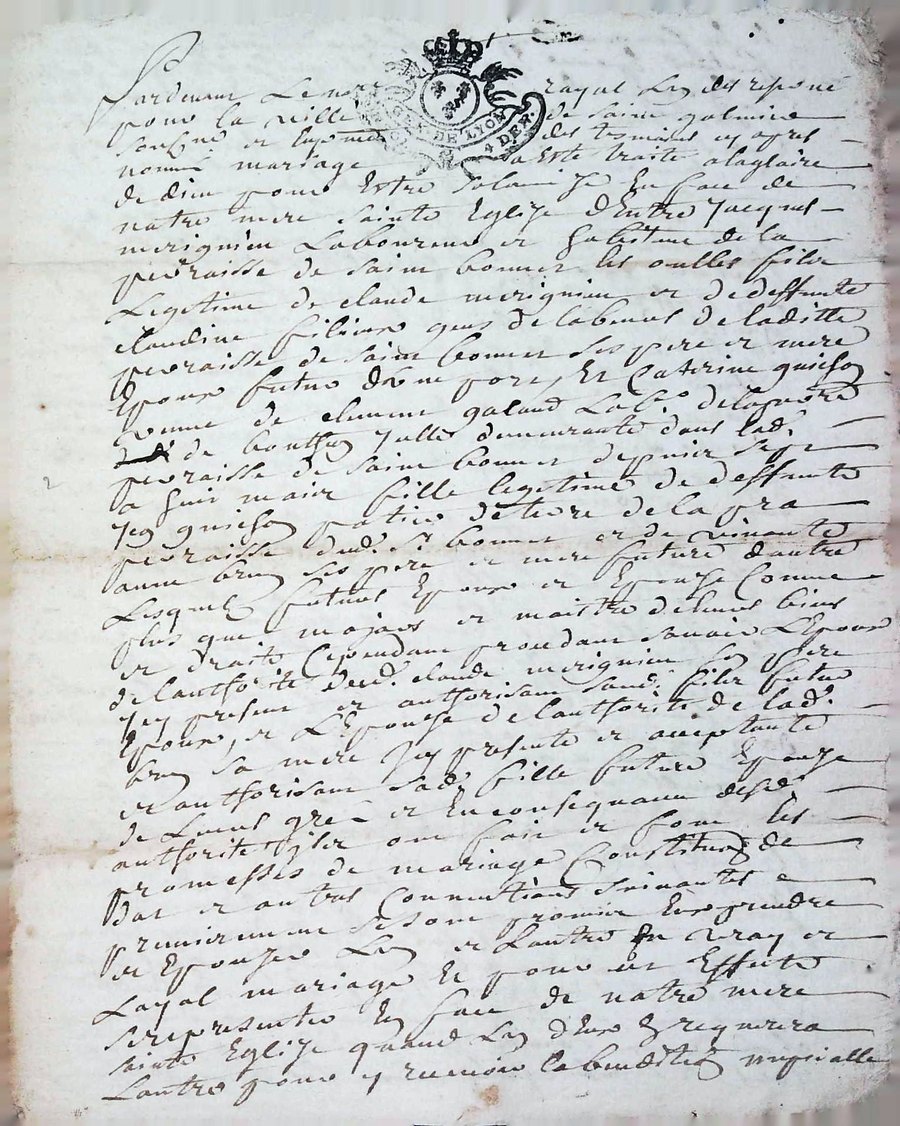 Pardevant Le no royal Ls des reponé
GEN. DE LYON
4 DEN.
pour la ville de Saint galmier
soussigné et en presence des tesmoins cy apres
nommé mariage a esté traité alaglaire
de dieu pour Estre Solamizé En face de
natre mere Sainte Eglize dEntre Jacques
merignieu Laboureur et habitant de la
perraisse de Saint bonnet les oulles filz
Legitime de claude merignieu et de deffunte
claudine gens de labeur de laditte
perraisse de Saint bonnet ses pere et mere
Epoux futur dune part, Et Caterine
venue de clement galand Lab.r de la
de bouthon Jcelle demeurante dans lad.
perraisse de Saint bonnet depuis sept
a huit mois fille legitime de deffunte
Jean de la pra
perraisse dud. St bonnet et de vivante
anne brun ses pere et mere future dautre
Lesquels futurs Epoux et Epouze Comme
plus que majeurs et maistre de leurs biens
et droits Cependant procedant Savoir LEpoux
de lauthorité dud. claude merignieu son pere
Jcy present et authorisant Sond. filz futur
Epoux, et LEpouze de lauthorité de lad.
brun sa mere Jcy presente et acceptante
et authorisant Sad. fille future Epouze
de Leurs gré et En consequance desd.
authorité ilz ont fait et font les
promesses de mariage Constitution de
dat et autres Conventions Suivantes
premierement se sont promis Eux prendre
et Epouzer Lun et Lautre En vray et
Layal mariage Et pour cet Effete
se representer En face de natre mere
Sainte Eglize quand Lun dEux En requerera
Lautre pour y recevoir la benediction nupsialle